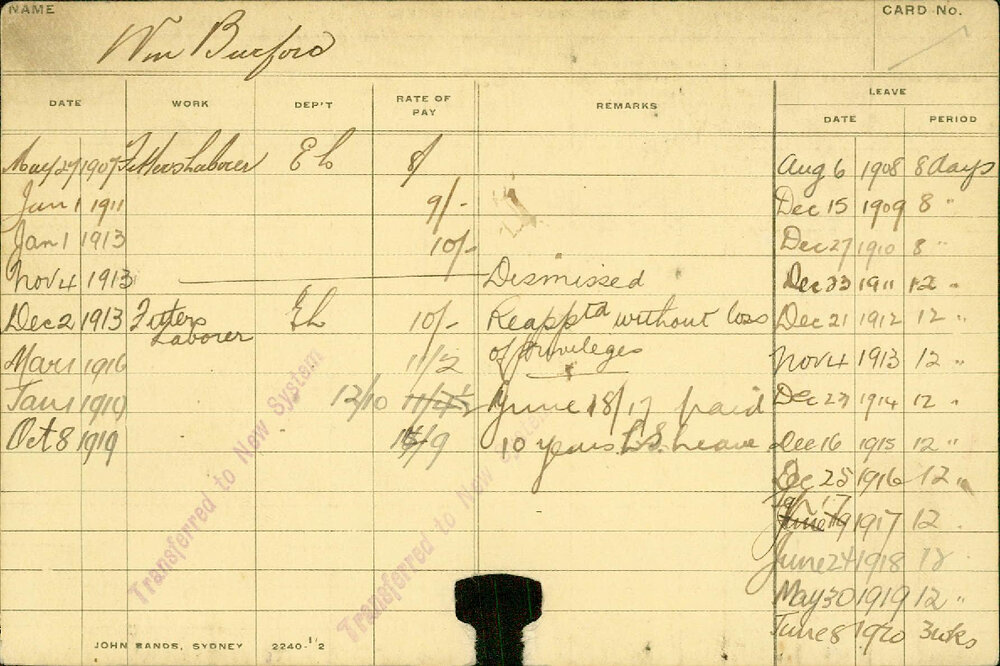 NAME
CARD No.
Wm Burford
DATE WORK DEP'T RATE OF PAY REMARKS LEAVE
DATE PERIOD
May 27 1907 Fitters Laborer E L 8/ Aug 6 1908 8 days
Jan 1 1911 9/- Dec 15 1909 8 "
Jan 1 1913 10/- Dec 27 1910 8 "
Nov 4 1913 Dismissed Dec 23 1911 12 "
Dec 2 1913 Fitters Laborer E L 10/- Reapptd without loss Dec 21 1912 12 "
Mar 1 1916 11/2 of privileges Nov 4 1913 12 "
Jan 1 1919 12/10 June 18/17 paid Dec 1914 12 "
Oct 8 1919 /9 10 years L.S. Leave Dec 16 1915 12 "
Dec 25 1916 12 "
1917 12
June 24 1918 12
May 30 1919 12 "
June 8 1920 3 wks
Transferred to New System
Transferred to New System
JOHN SANDS, SYDNEY 2240-½